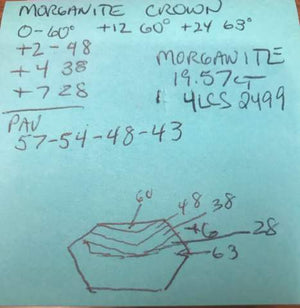 MORGANITE CROWN
0-60° +12 60° +24 63°
+2-48
+4 38
+7 28
MORGANITE
19.57CT
4LCS 2499
PAV
57-54-48-43
60
48 38
+6 28
63